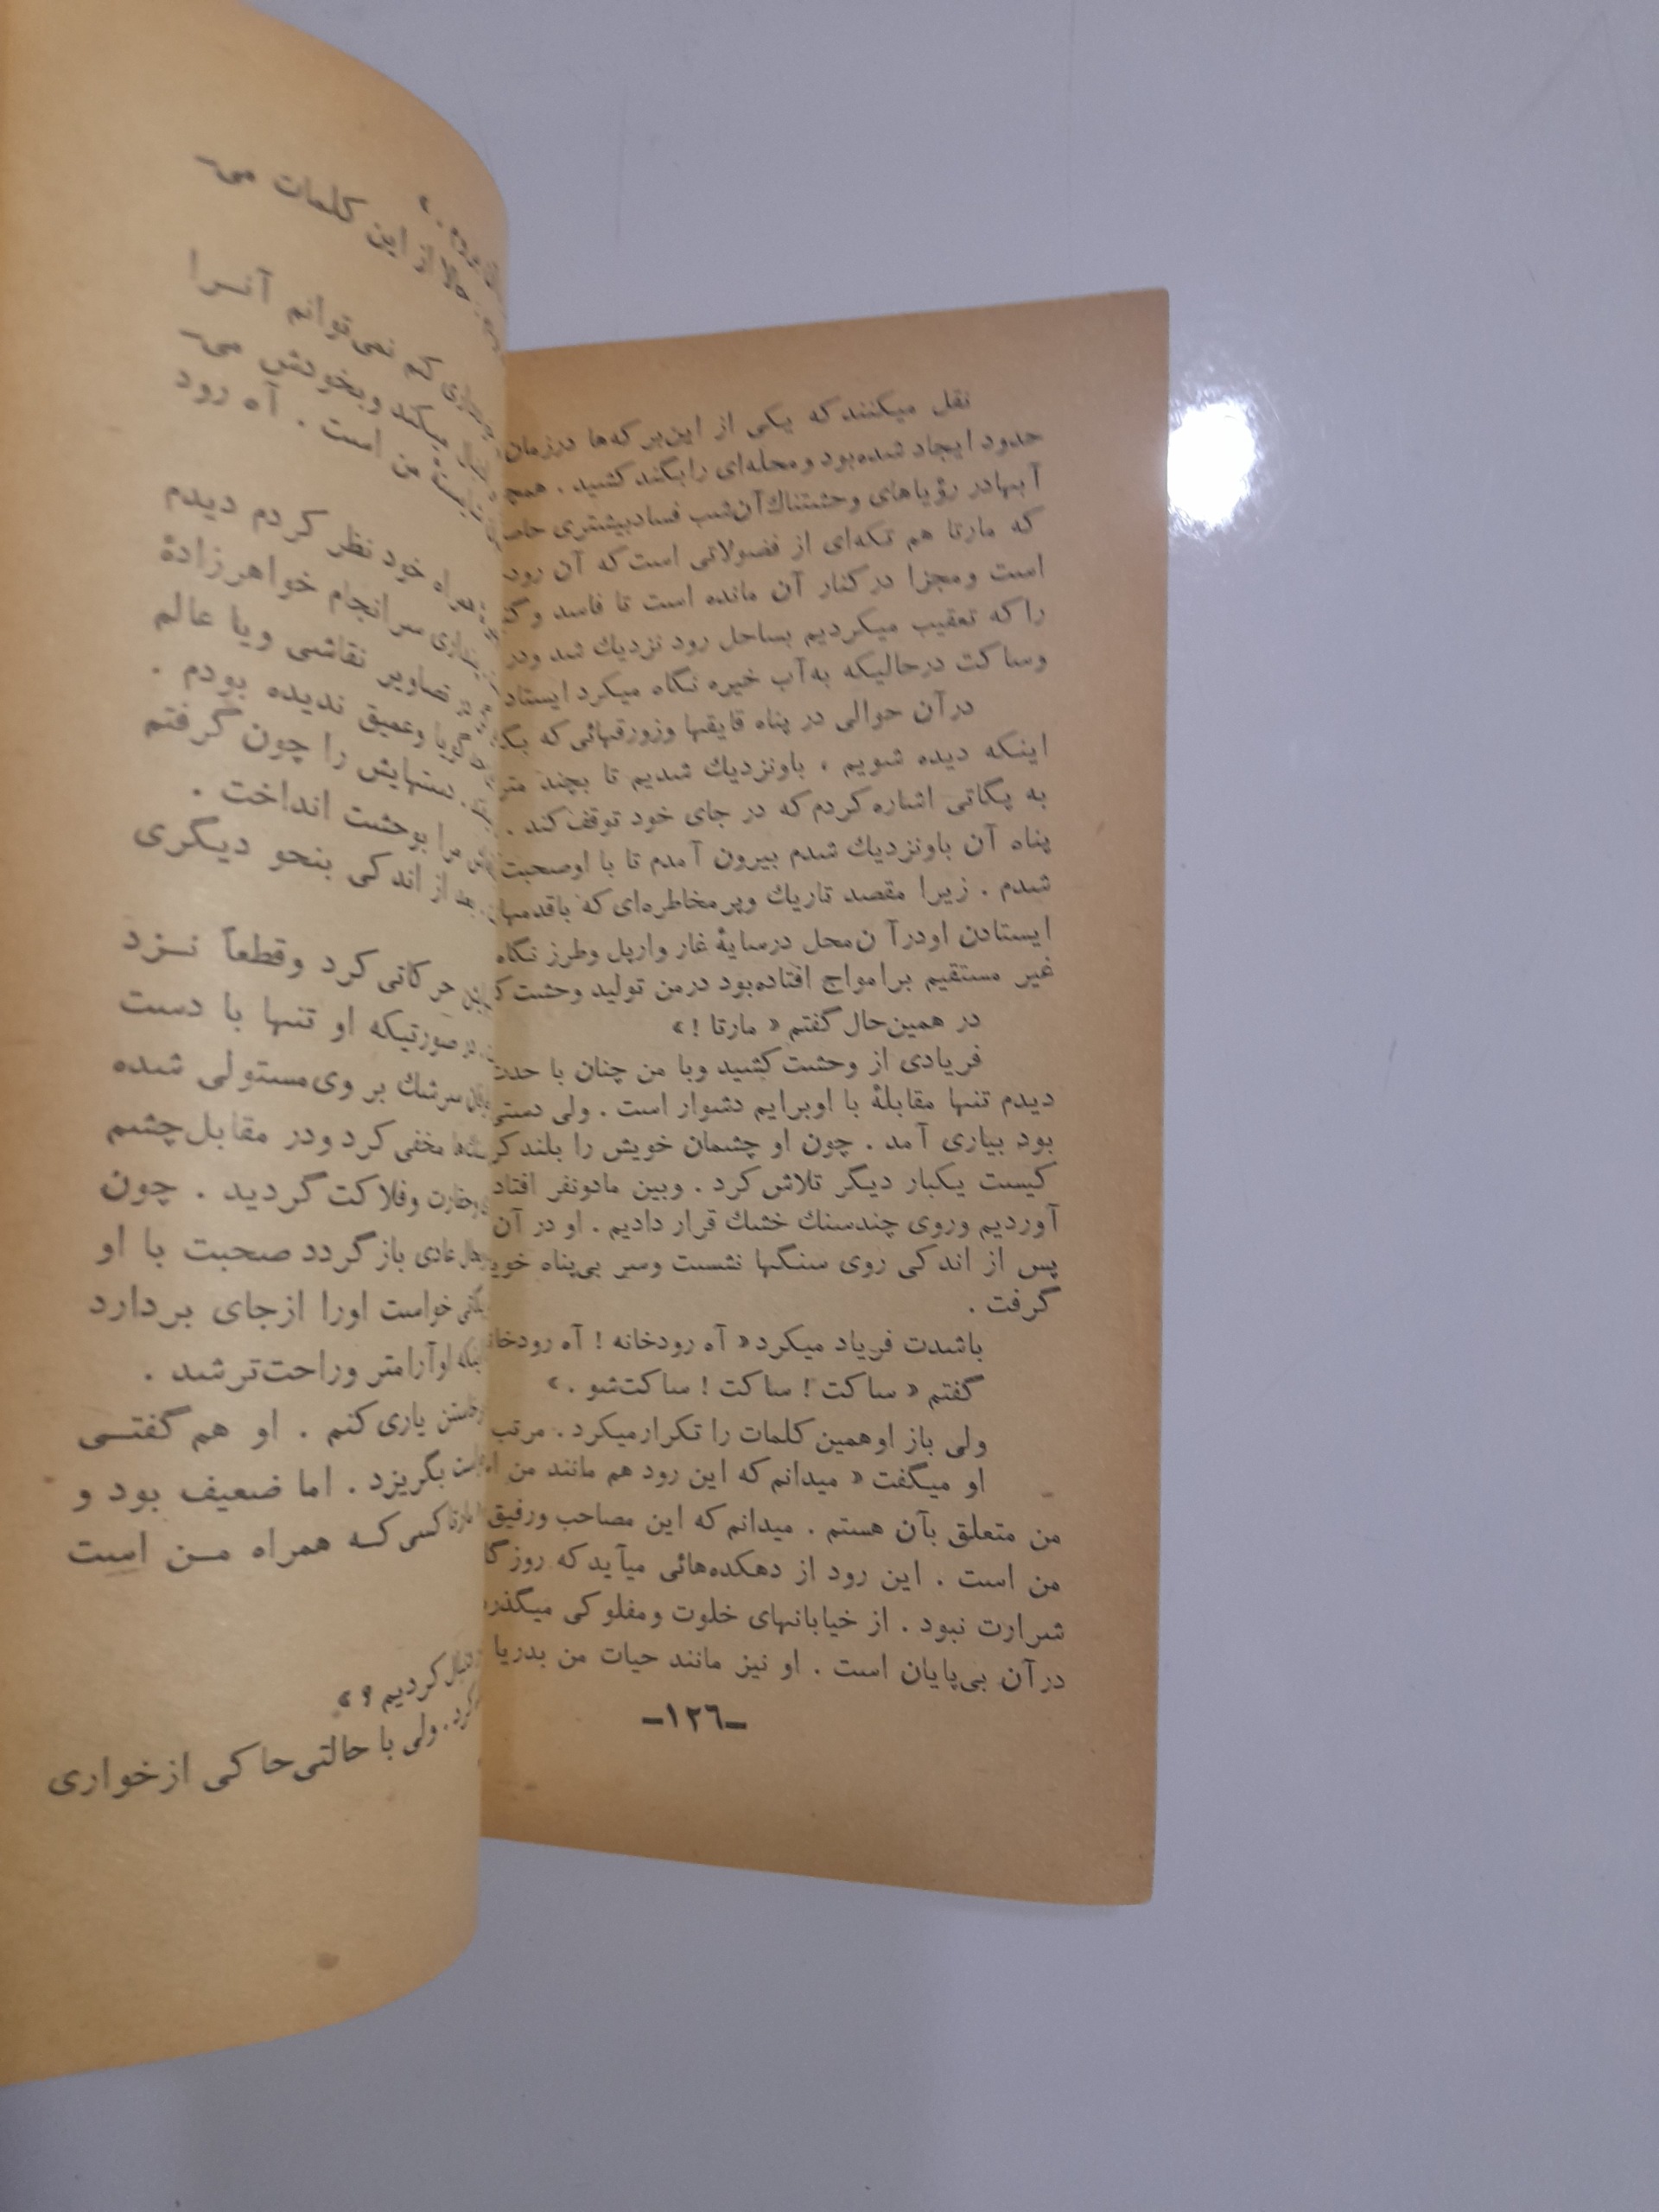 نقل میکنند که یکی از این برکه‌ها درزمان
حدود ایجاد شده‌بود و محله‌ای را بگند کشید . همچ
آبها در رؤیاهای وحشتناك آن شب فساد بیشتری حاص
که مارتا هم تکه‌ای از فضولاتی است که آن رود
است ومجزا در کنار آن مانده است تا فاسد وگ
را که تعقیب میکردیم بساحل رود نزدیك شد ودر
وساکت درحالیکه به‌آب خیره نگاه میکرد ایستاد
درآن حوالی در پناه قایقها وزورقهائی که بگ
اینکه دیده شویم ، باونزدیك شدیم تا بچند متر
به پگاتی اشاره کردم که در جای خود توقف کند .
پناه آن باونزدیك شدم بیرون آمدم تا با اوصحبت
شدم . زیرا مقصد تاریك وپرمخاطره‌ای که باقدمهای
ایستادن اودرآ ن‌محل درسایۀ غار وارپل وطرز نگاه
غیر مستقیم برامواج افتاده‌بود درمن تولید وحشت ک
در همین‌حال گفتم « مارتا ! »
فریادی از وحشت کشید وبا من چنان با حدت
دیدم تنها مقابلۀ با اوبرایم دشوار است . ولی دستی
بود بیاری آمد . چون او چشمان خویش را بلند کر
کیست یکبار دیگر تلاش کرد . وبین مادونفر افتاد
آوردیم وروی چندسنك خشك قرار دادیم . او در آن
پس از اندکی روی سنگها نشست وسر بی‌پناه خوی
گرفت .
باشدت فریاد میکرد « آه رودخانه ! آه رودخان
گفتم « ساکت ! ساکت ! ساکت‌شو . »
ولی باز اوهمین کلمات را تکرارمیکرد . مرتب
او میگفت « میدانم که این رود هم مانند من
من متعلق بآن هستم . میدانم که این مصاحب ورفیق
من است . این رود از دهکده‌هائی میآید که روزگا
شرارت نبود . از خیابانهای خلوت ومفلوکی میگذر
درآن بی‌پایان است . او نیز مانند حیات من بدریا
–۱۲۶–
حالا از این کلمات می–
که نمی‌توانم آنــرا
میکند وبخودش می–
من است . آه رود
خود نظر کردم دیدم
سرانجام خواهرزادۀ
در تصاویر نقاشی ویا عالم
گویا وعمیق ندیده بودم .
دستهایش را چون گرفتم
مرا بوحشت انداخت .
بعد از اندکی بنحو دیـگری
حرکاتی کرد وقطعاً نــزد
در صورتیکه او تنها با دست
سرشك بر وی مستولی شده
مخفی کرد ودر مقابل چشم
وفلاکت گردید . چون
عادی باز گردد صحبت با او
خواست اورا ازجای بردارد
اوآرامتر وراحت‌تر شد .
یاری کنم . او هم گفتــی
بگریزد . اما ضعیف بود و
مارتا کسی کــه همراه مــن است
دنبال کردیم ؟ »
کرد . ولی با حالتی حاکی ازخواری